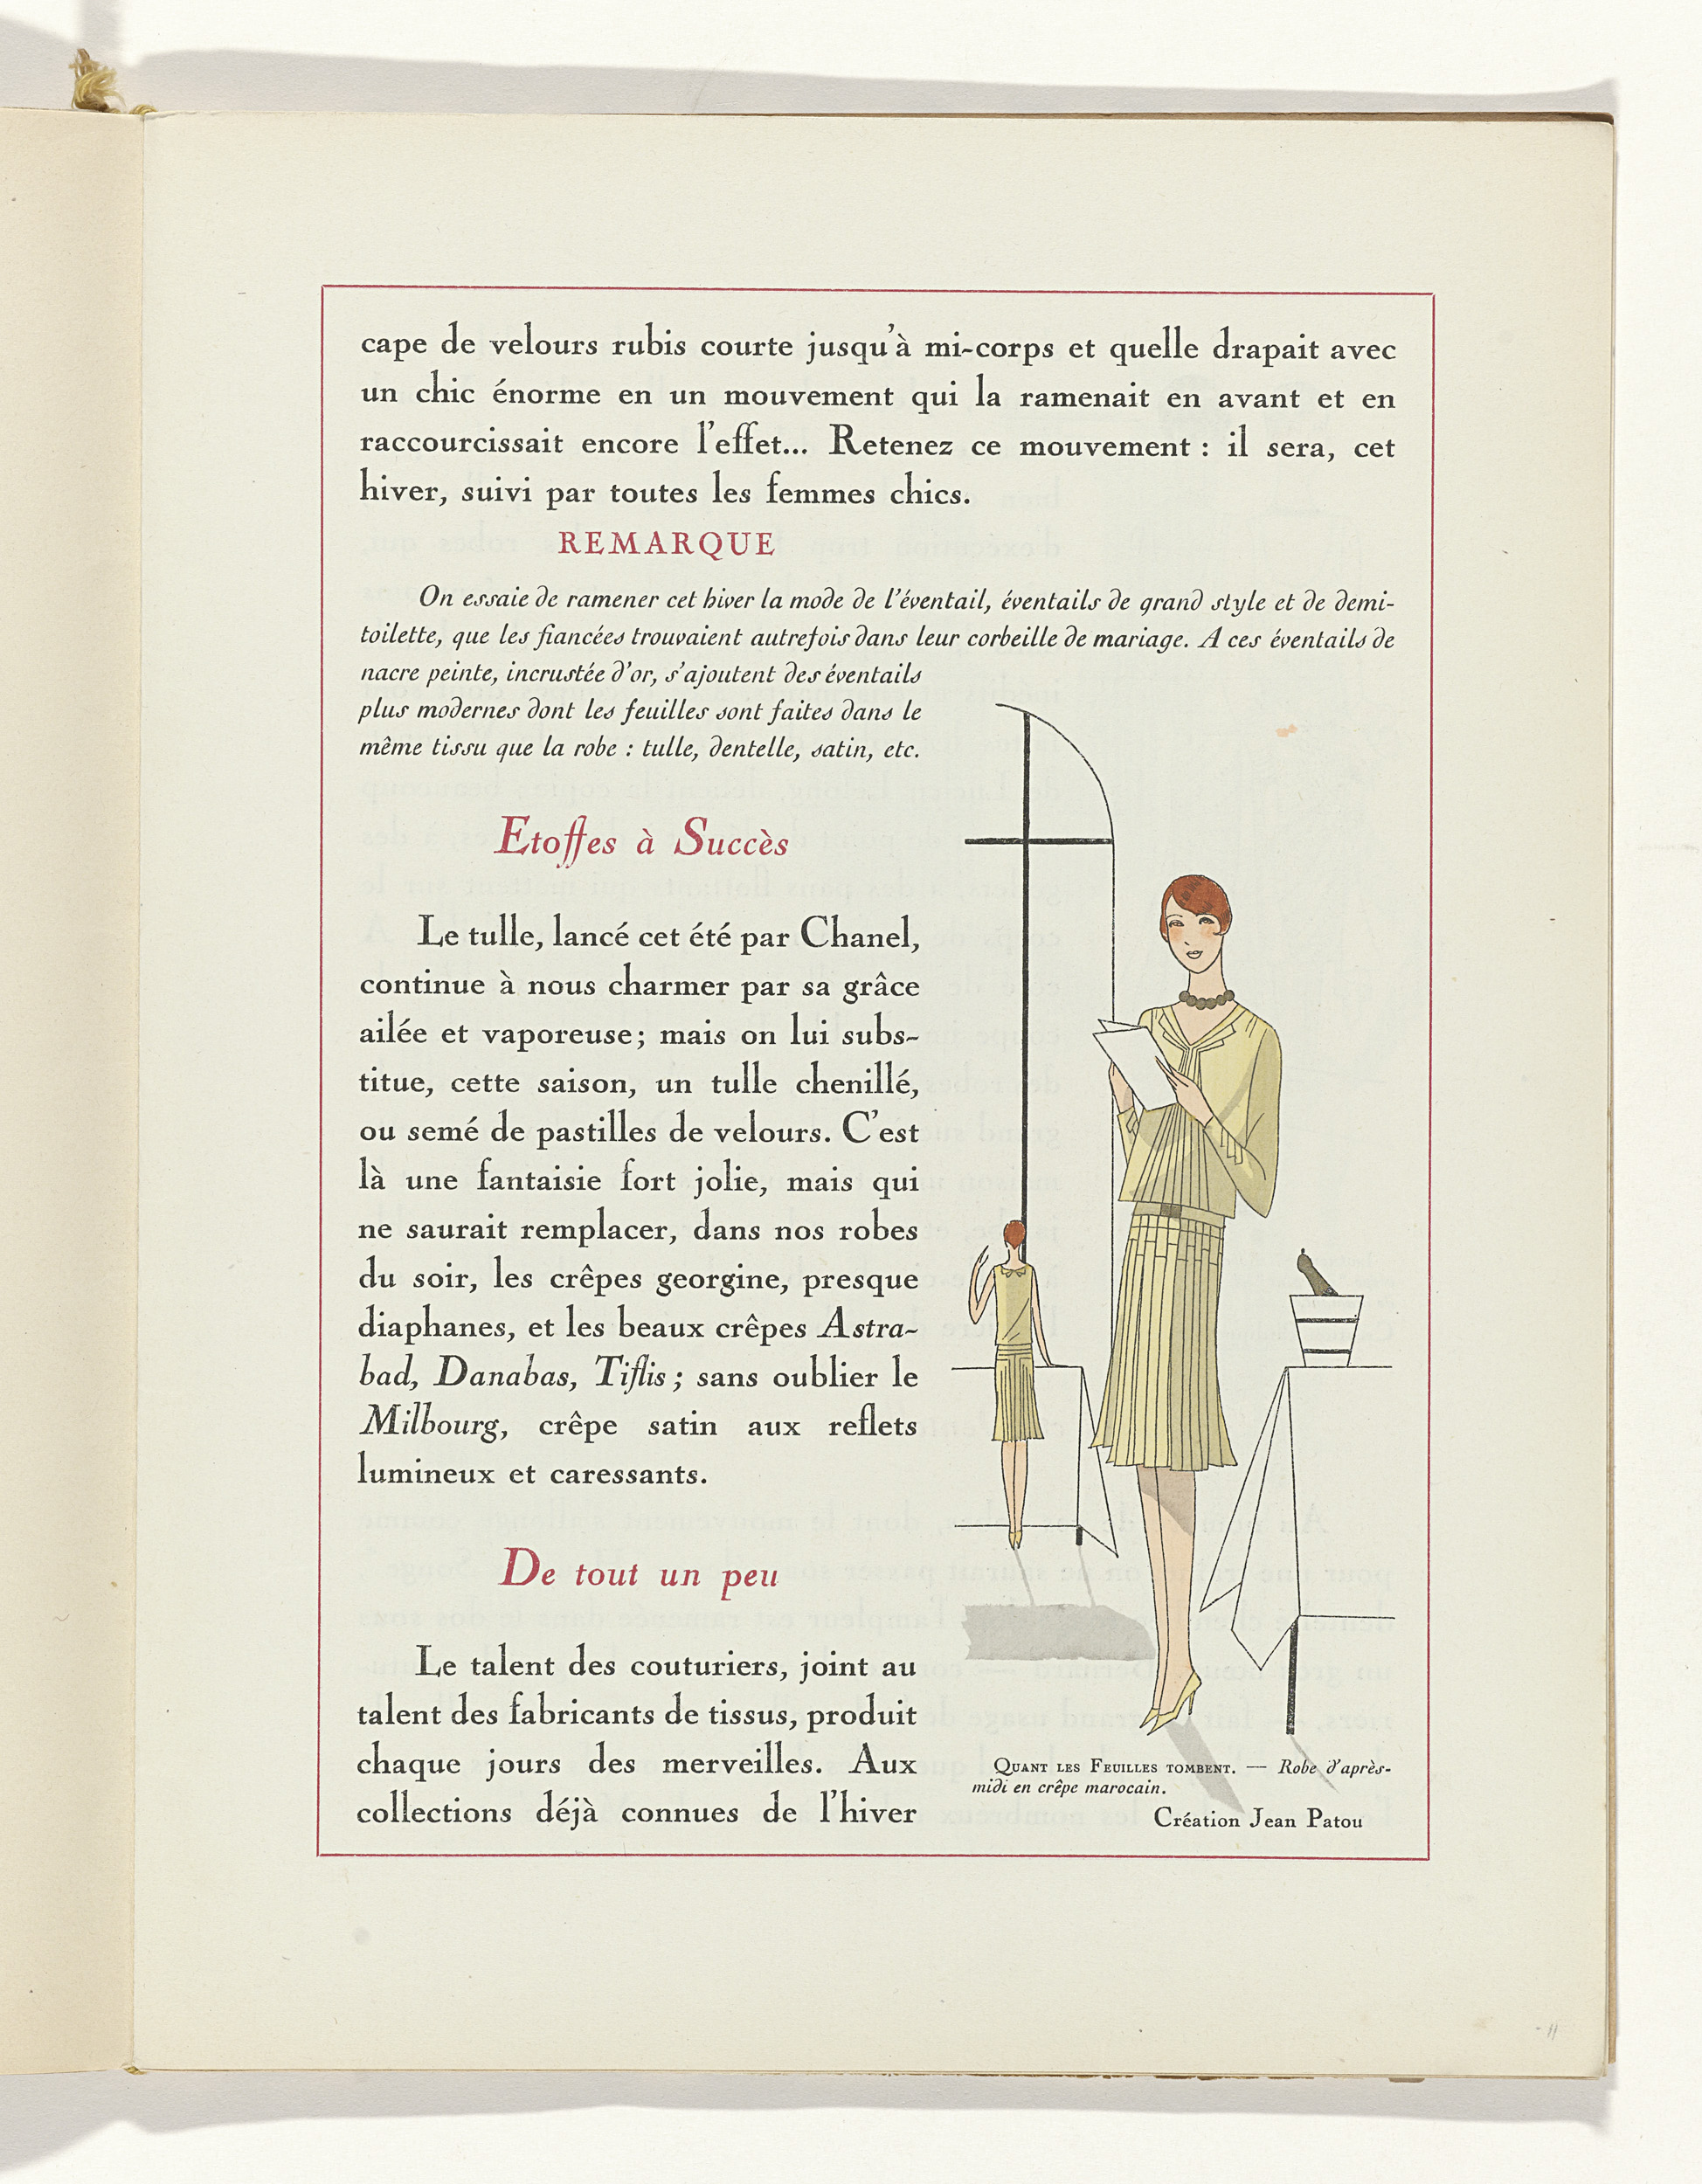 cape de velours rubis courte jusqu'à mi-corps et quelle drapait avec
un chic énorme en un mouvement qui la ramenait en avant et en
raccourcissait encore l'effet... Retenez ce mouvement : il sera, cet
hiver, suivi par toutes les femmes chics.
REMARQUE
On essaie de ramener cet hiver la mode de l'éventail, éventails de grand style et de demi-
toilette, que les fiancées trouvaient autrefois dans leur corbeille de mariage. A ces éventails de
nacre peinte, incrustée d'or, s'ajoutent des éventails
plus modernes dont les feuilles sont faites dans le
même tissu que la robe : tulle, dentelle, satin, etc.
Etoffes à Succès
Le tulle, lancé cet été par Chanel,
continue à nous charmer par sa grâce
ailée et vaporeuse; mais on lui subs-
titue, cette saison, un tulle chenillé,
ou semé de pastilles de velours. C'est
là une fantaisie fort jolie, mais qui
ne saurait remplacer, dans nos robes
du soir, les crêpes georgine, presque
diaphanes, et les beaux crêpes Astra-
bad, Danabas, Tiflis; sans oublier le
Milbourg, crêpe satin aux reflets
lumineux et caressants.
De tout un peu
Le talent des couturiers, joint au
talent des fabricants de tissus, produit
chaque jours des merveilles. Aux
collections déjà connues de l'hiver
QUANT LES FEUILLES TOMBENT. — Robe d'après-
midi en crêpe marocain.
Création Jean Patou